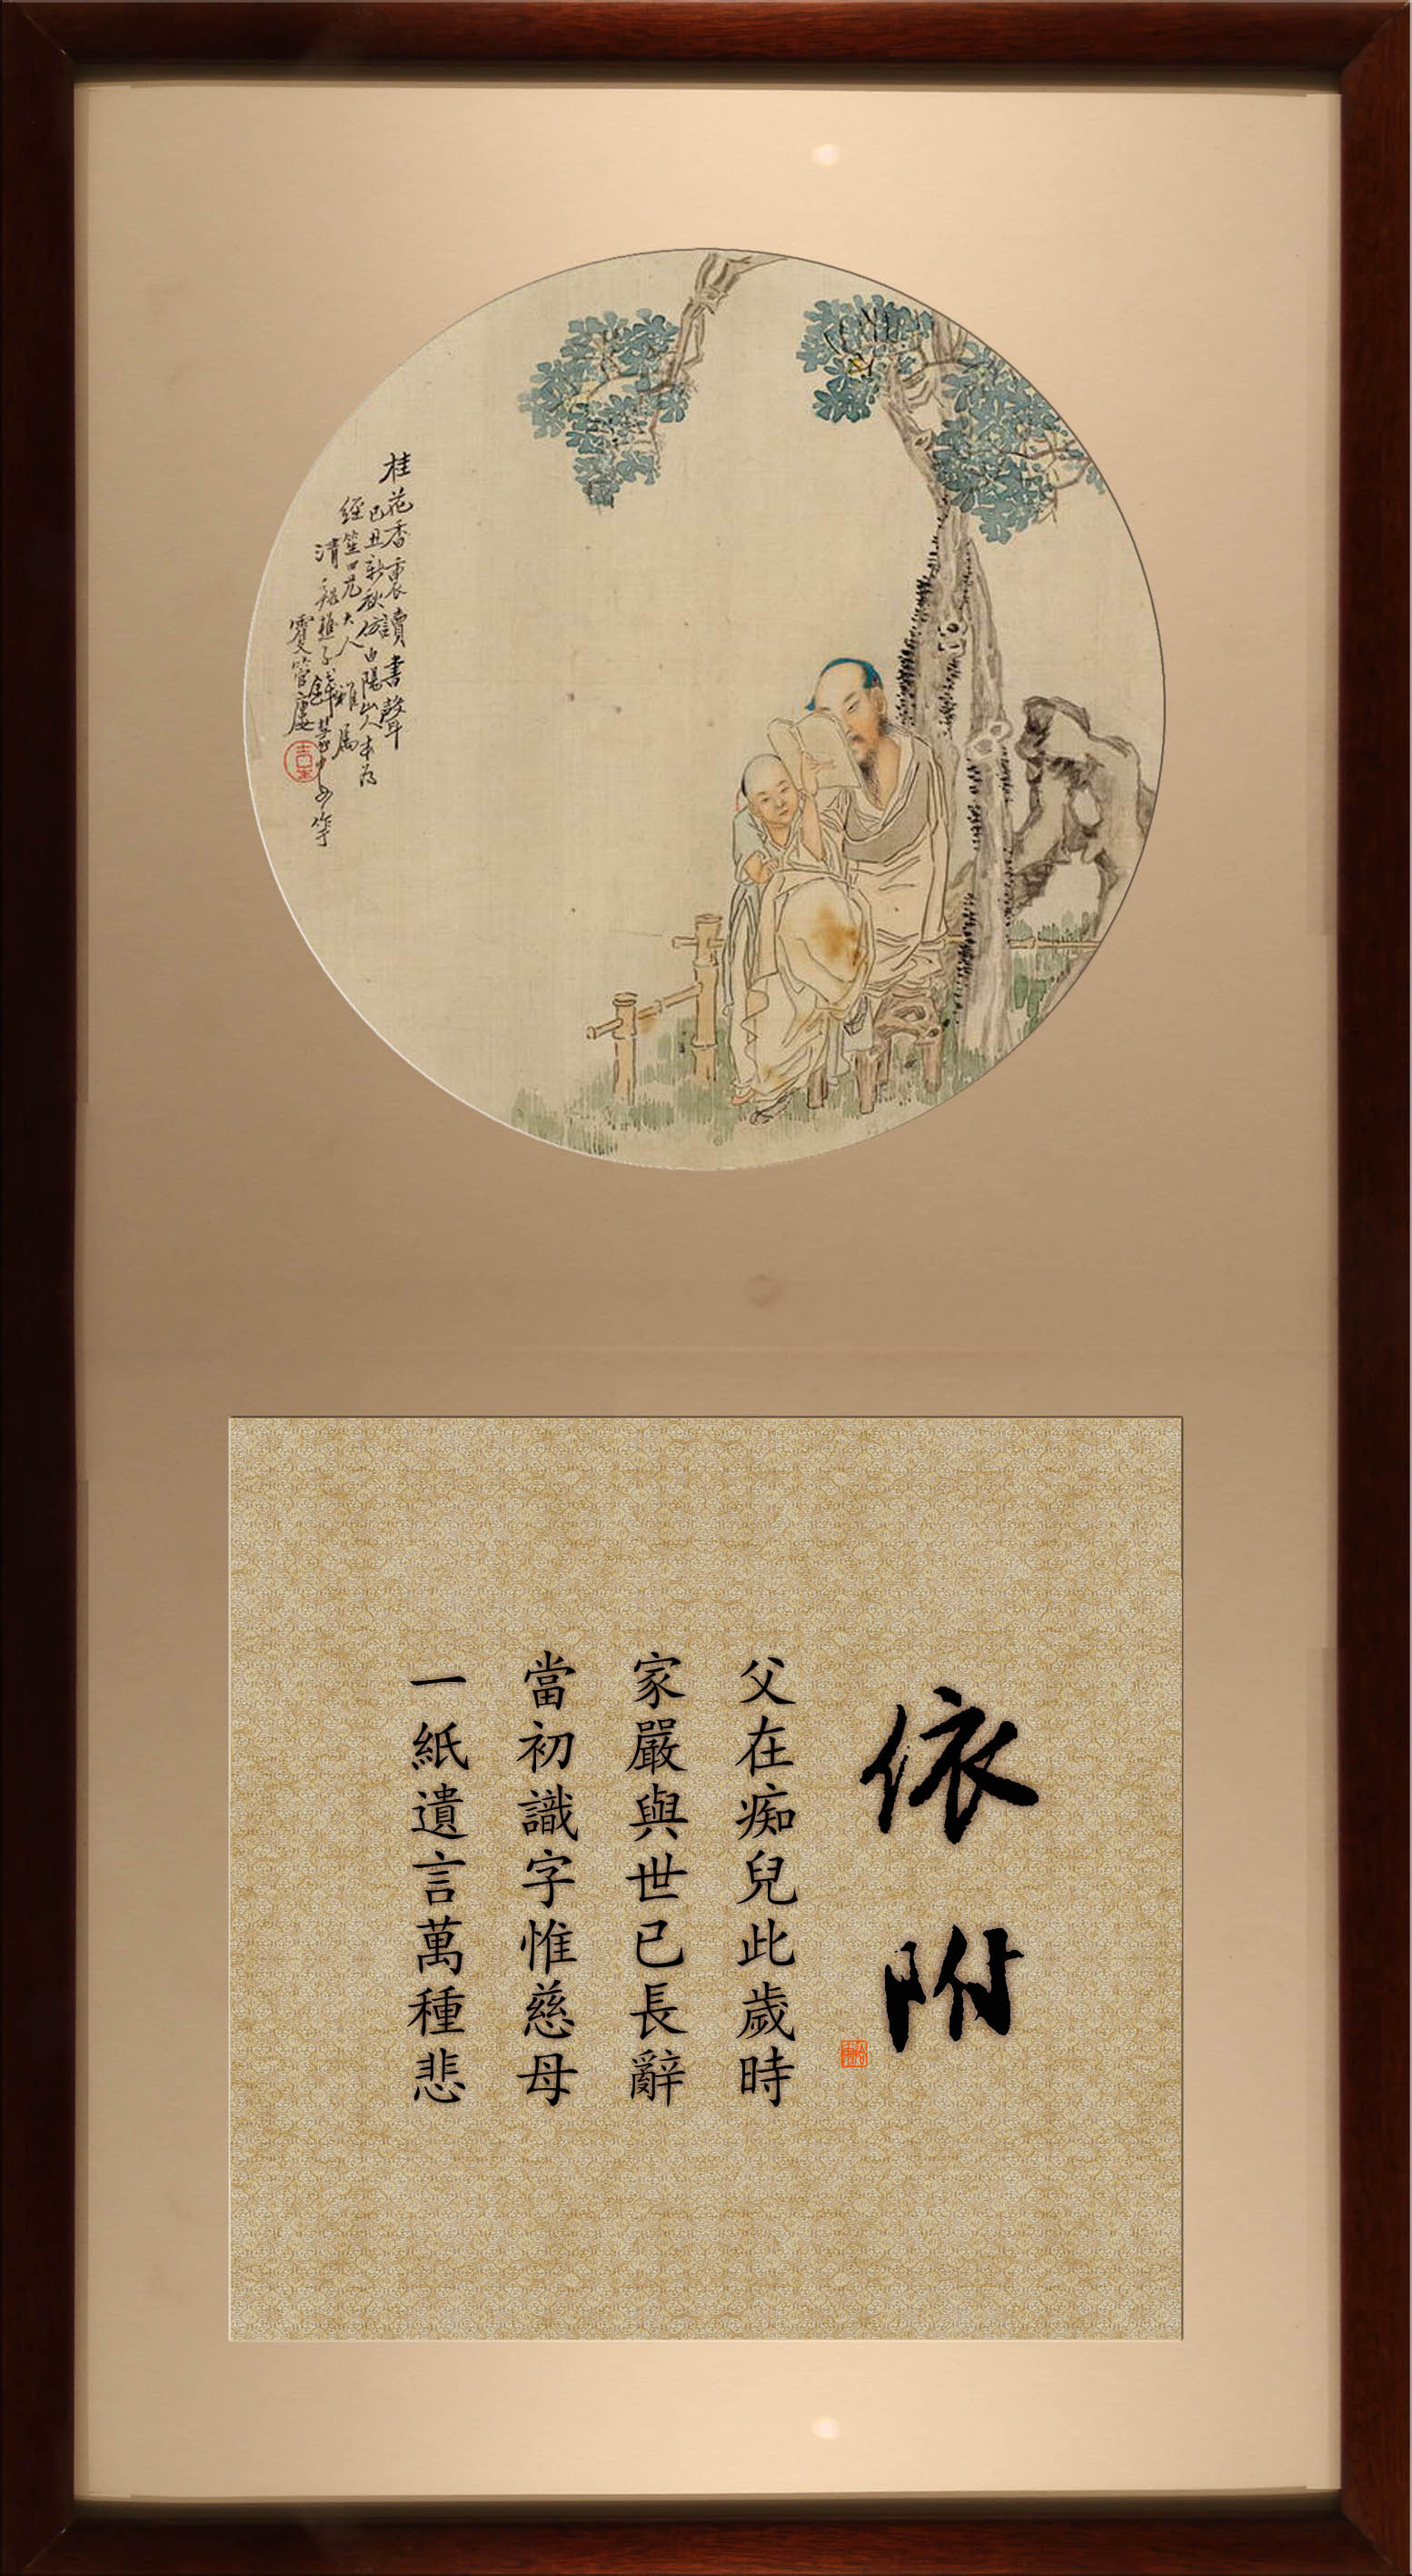 桂花香裏讀書聲
己丑新秋仿白陽山人本為
經笙四兄大人雅屬
清谿樵子錢慧安作于
雙管廔
依附
父在痴兒此歲時
家嚴與世已長辭
當初識字惟慈母
一紙遺言萬種悲